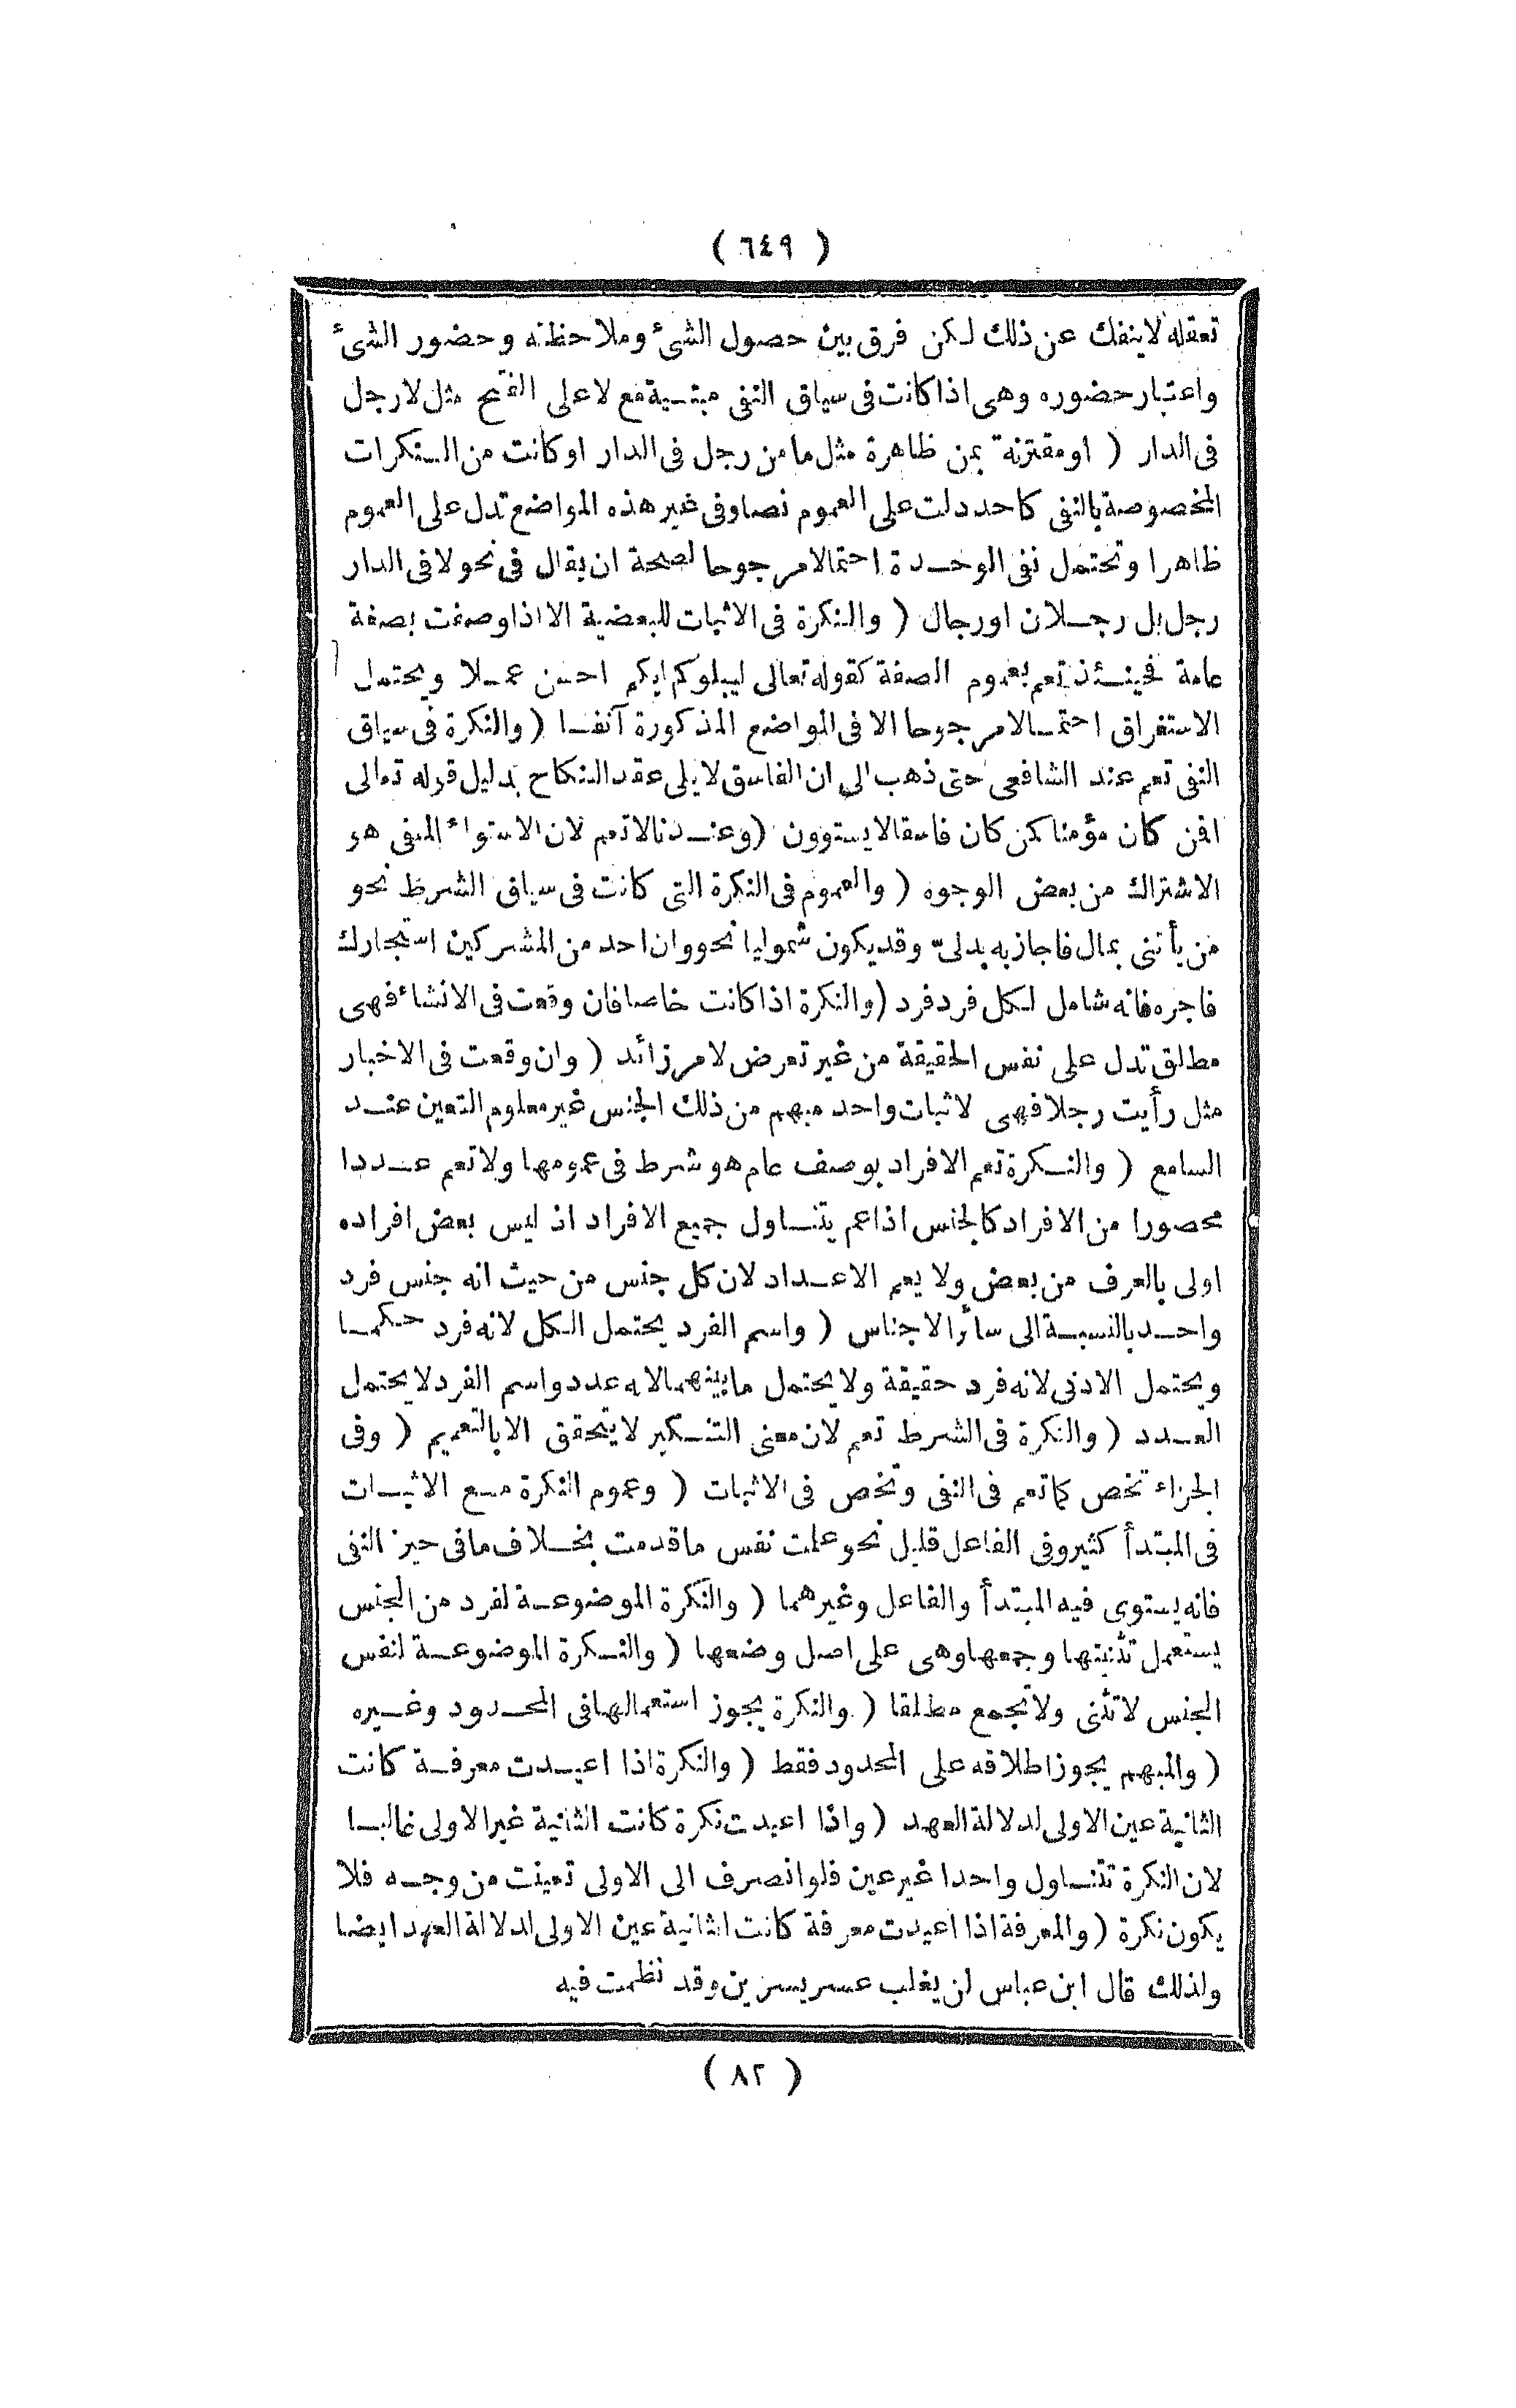 ( ٦٤٩ )
تعقله لا ينفك عن ذلك لكن فرق بين حصول الشئ وملاحظته وحضور الشئ
واعتبار حضوره وهى اذا كانت فى سياق النفى مبتدية مع لا على الفتح مثل لا رجل
فى الدار ( او مقترنة بمن ظاهرة مثل ما من رجل فى الدار او كانت من النكرات
المخصوصة بالنفى كاحد دلت على العموم نصا وفى غير هذه المواضع تدل على العموم
ظاهرا وتحتمل نفى الوحدة احتمالا مرجوحا لصحة ان يقال فى نحو لا فى الدار
رجل بل رجلان او رجال ( والنكرة فى الاثبات للبعضية الا اذا وصفت بصفة
عامة فحينئذ تعم بعموم الصفة كقوله تعالى ليبلوكم ايكم احسن عملا ويحتمل
الاستغراق احتمالا مرجوحا الا فى المواضع المذكورة آنفا ( والنكرة فى سياق
النفى تعم عند الشافعى حتى ذهب الى ان الفاسق لا يلى عقد النكاح بدليل قوله تعالى
افمن كان مؤمنا كمن كان فاسقا لا يستوون ( وعندنا لا تعم لان الاستواء المنفى هو
الاشتراك من بعض الوجوه ( والعموم فى النكرة التى كانت فى سياق الشرط نحو
من يأتنى بمال فاجازيه بدلىّ وقد يكون شموليا نحو وان احد من المشركين استجارك
فاجره فانه شامل لكل فرد فرد ( والنكرة اذا كانت خاصا فان وقعت فى الانشاء فهى
مطلق تدل على نفس الحقيقة من غير تعرض لامر زائد ( وان وقعت فى الاخبار
مثل رأيت رجلا فهى لاثبات واحد مبهم من ذلك الجنس غير معلوم التعين عند
السامع ( والنكرة تعم الافراد بوصف عام هو شرط فى عمومها ولا تعم عددا
محصورا من الافراد كالجنس اذا عم يتناول جميع الافراد اذ ليس بعض افراده
اولى بالعرف من بعض ولا يعم الاعداد لان كل جنس من حيث انه جنس فرد
واحد بالنسبة الى سائر الاجناس ( واسم الفرد يحتمل الكل لانه فرد حكما
ويحتمل الادنى لانه فرد حقيقة ولا يحتمل ما بينهما لانه عدد واسم الفرد لا يحتمل
العدد ( والنكرة فى الشرط تعم لان معنى التنكير لا يتحقق الا بالتعميم ( وفى
الجزاء تخص كما تعم فى النفى وتخص فى الاثبات ( وعموم النكرة مع الاثبات
فى المبتدأ كثير وفى الفاعل قليل نحو علمت نفس ما قدمت بخلاف ما فى حيز النفى
فانه يستوى فيه المبتدأ والفاعل وغيرهما ( والنكرة الموضوعة لفرد من الجنس
يستعمل تثنيتها وجمعها وهى على اصل وضعها ( والنكرة الموضوعة لنفس
الجنس لا تثنى ولا تجمع مطلقا ( والنكرة يجوز استعمالها فى المحدود وغيره
( والمبهم يجوز اطلاقه على المحدود فقط ( والنكرة اذا اعيدت معرفة كانت
الثانية عين الاولى لدلالة العهد ( واذا اعيدت نكرة كانت الثانية غير الاولى غالبا
لان النكرة تتناول واحدا غير عين فلو انصرف الى الاولى تعينت من وجه فلا
يكون نكرة ( والمعرفة اذا اعيدت معرفة كانت الثانية عين الاولى لدلالة العهد ايضا
ولذلك قال ابن عباس لن يغلب عسر يسرين وقد نظمت فيه
( ٨٢ )